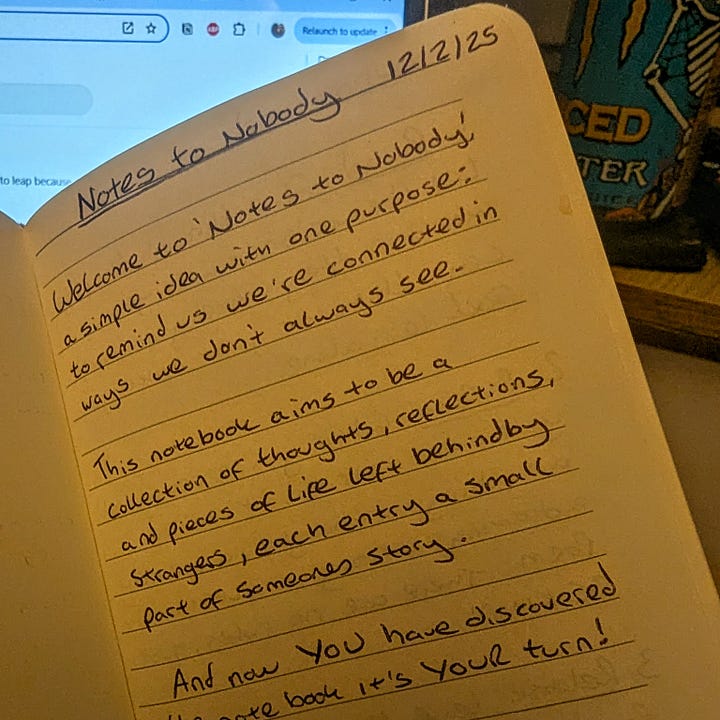 Relaunch to update
to leap because
12/2/25
Notes to Nobody
Welcome to 'Notes to Nobody',
a simple idea with one purpose:
to remind us we're connected in
ways we don't always see.
This notebook aims to be a
collection of thoughts, reflections,
and pieces of life left behind by
strangers, each entry a small
part of someones story.
And now YOU have discovered
note book it's YOUR turn!
CED
TER